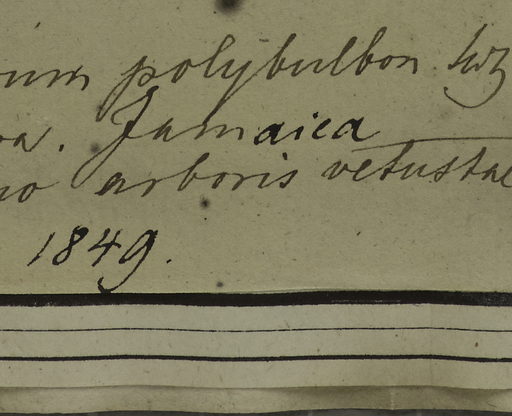 um polybulbon Swz
a. Jamaica
no arboris vetustae
1849.